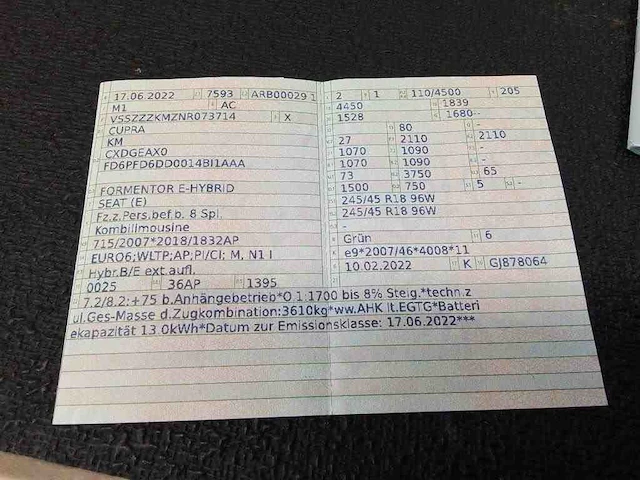 17.06.2022 7593 ARB00029 1
M1 AC
VSSZZZKMZNR073714 X
CUPRA
KM
CXDGEAX0
FD6PFD6DD0014BI1AAA
FORMENTOR E-HYBRID
SEAT (E)
Fz.z.Pers.bef.b. 8 Spl.
Kombilimousine
715/2007*2018/1832AP
EURO6;WLTP;AP;PI/CI; M, N1 I
Hybr.B/E ext.aufl.
0025 36AP 1395
2 1 110/4500 205
4450 1839
1528 1680--
80 -
27 2110 2110
1070 1090 -
1070 1090 -
73 3750 65
1500 750 5 -
245/45 R18 96W
245/45 R18 96W
-
Grün 6
e9*2007/46*4008*11
10.02.2022 K GJ878064
7.2/8.2:+75 b.Anhängebetrieb*O.1:1700 bis 8% Steig.*techn.z
ul.Ges-Masse d.Zugkombination:3610kg*ww.AHK lt.EGTG*Batteri
ekapazität 13.0kWh*Datum zur Emissionsklasse: 17.06.2022***